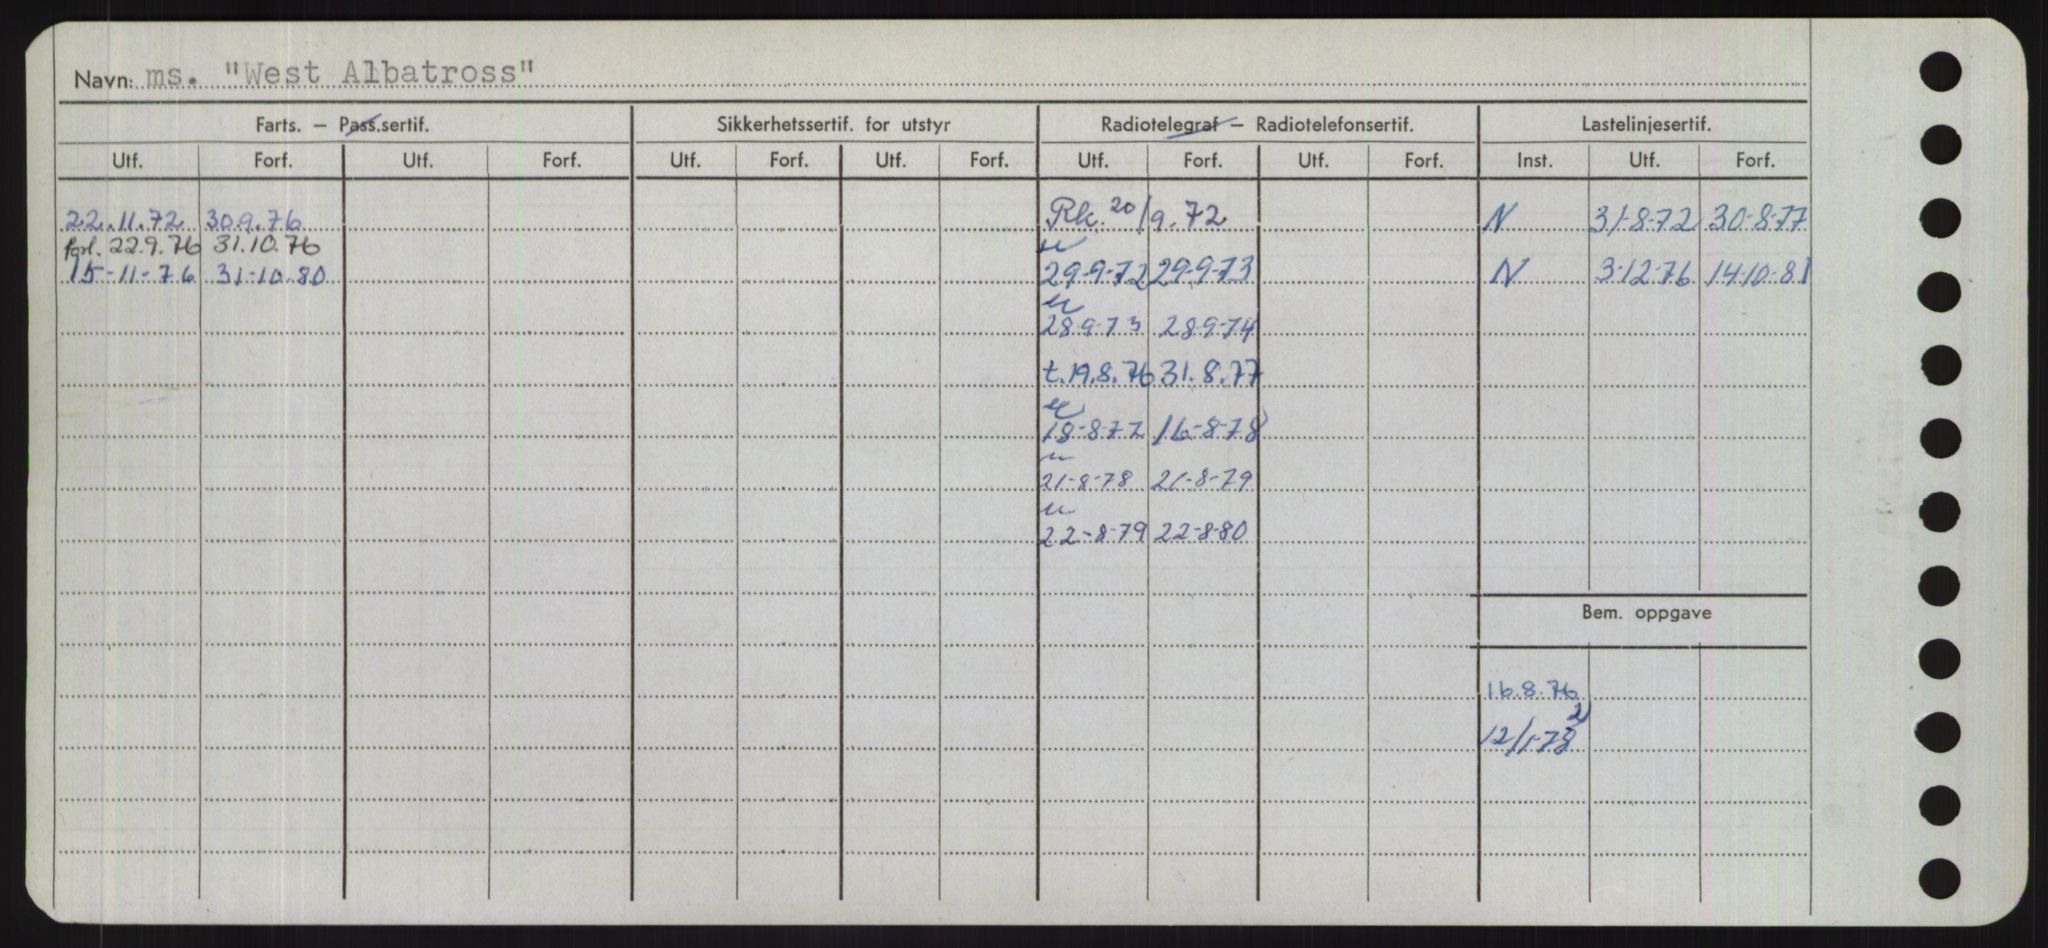 Navn: ms. "West Albatross"
Farts. – Pass.sertif. Sikkerhetssertif. for utstyr Radiotelegraf – Radiotelefonsertif. Lastelinjesertif.
Utf. Forf. Utf. Forf. Utf. Forf. Utf. Forf. Utf. Forf. Utf. Forf. Inst. Utf. Forf.
22.11.72 30.9.76 Rk. 20/9.72 N 31-8-72 30-8-77
forl. 22.9.76 31.10.76
15-11-76 31-10-80 29-9-72 29-9-73 N 3-12-76 14-10-81
28-9-73 28-9-74
t.19.8.76 31.8.77
18-8-77 16-8-78
21-8-78 21-8-79
22-8-79 22-8-80
Bem. oppgave
16.8.76
12/1-78 2)